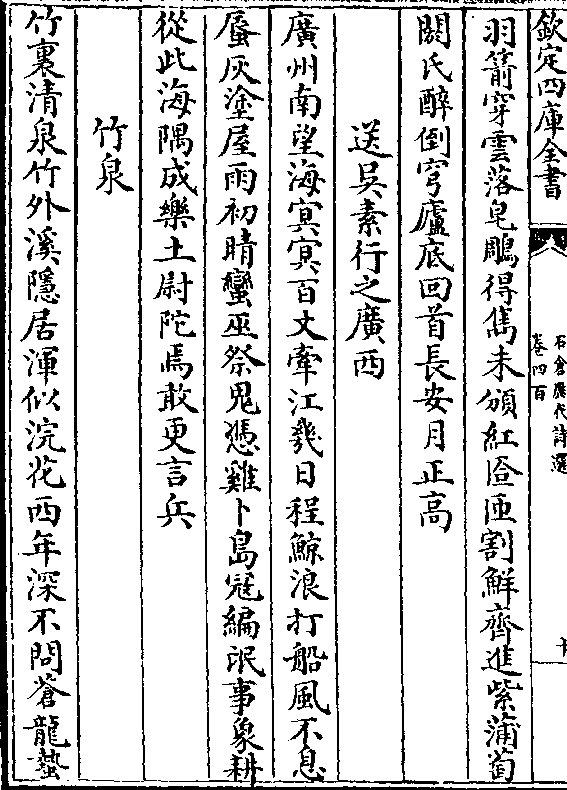 欽定四庫全書
石倉歷代詩選
卷四百
十
羽箭穿雲落皂鵰得雋未頒紅匼匝割鮮齊進紫蒲萄
閼氏醉倒穹廬底回首長安月正高
送吳素行之廣西
廣州南望海冥冥百丈牽江幾日程鯨浪打船風不息
蜃灰塗屋雨初晴蠻巫祭鬼憑雞卜島冦編氓事象耕
從此海隅成樂土尉陀焉敢更言兵
竹泉
竹裏清泉竹外溪隱居渾似浣花西年深不問蒼龍蟄